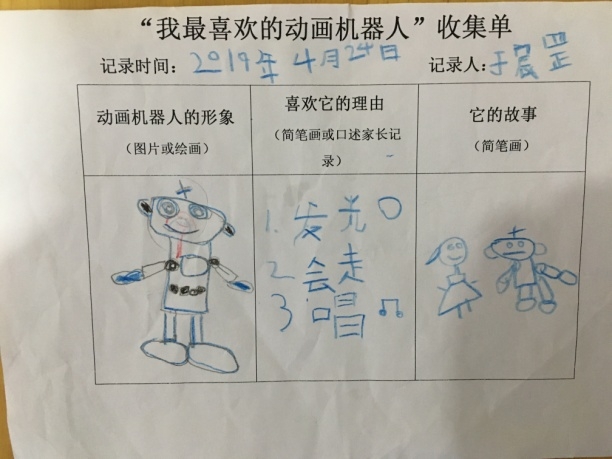 “我最喜欢的动画机器人”收集单
记录时间：2019年4月24日 记录人：于晨罡
动画机器人的形象
（图片或绘画）
喜欢它的理由
（简笔画或口述家长记
录）
它的故事
（简笔画）
1. 发光
2 会走
3 唱